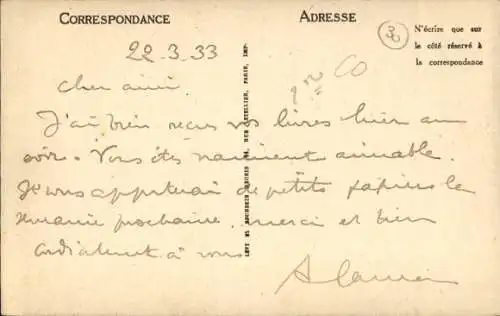 CORRESPONDANCE
ADRESSE
N'écrire que sur
le côté réservé à
la correspondance
30
22-3-33
Cher ami.
J'ai bien reçu vos livres hier au
soir. Vous êtes vraiment aimable.
Je vous apporterai de petits papiers la
semaine prochaine. merci et bien
cordialement à vous